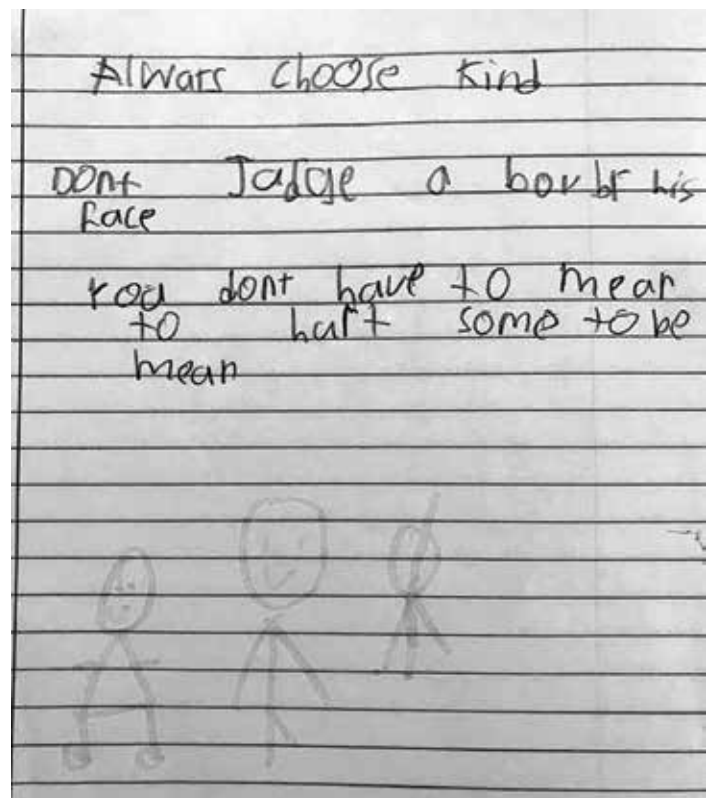 Always choose kind
Dont Judge a boy by his
face
you dont have to mean
to hurt some to be
mean